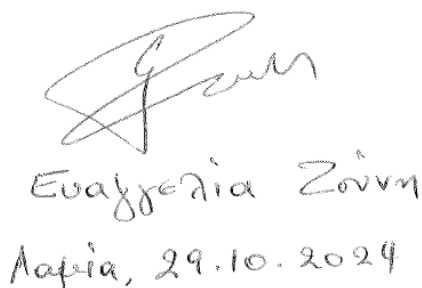 Ευαγγελία Ζούνη
Λαμία, 29.10.2024